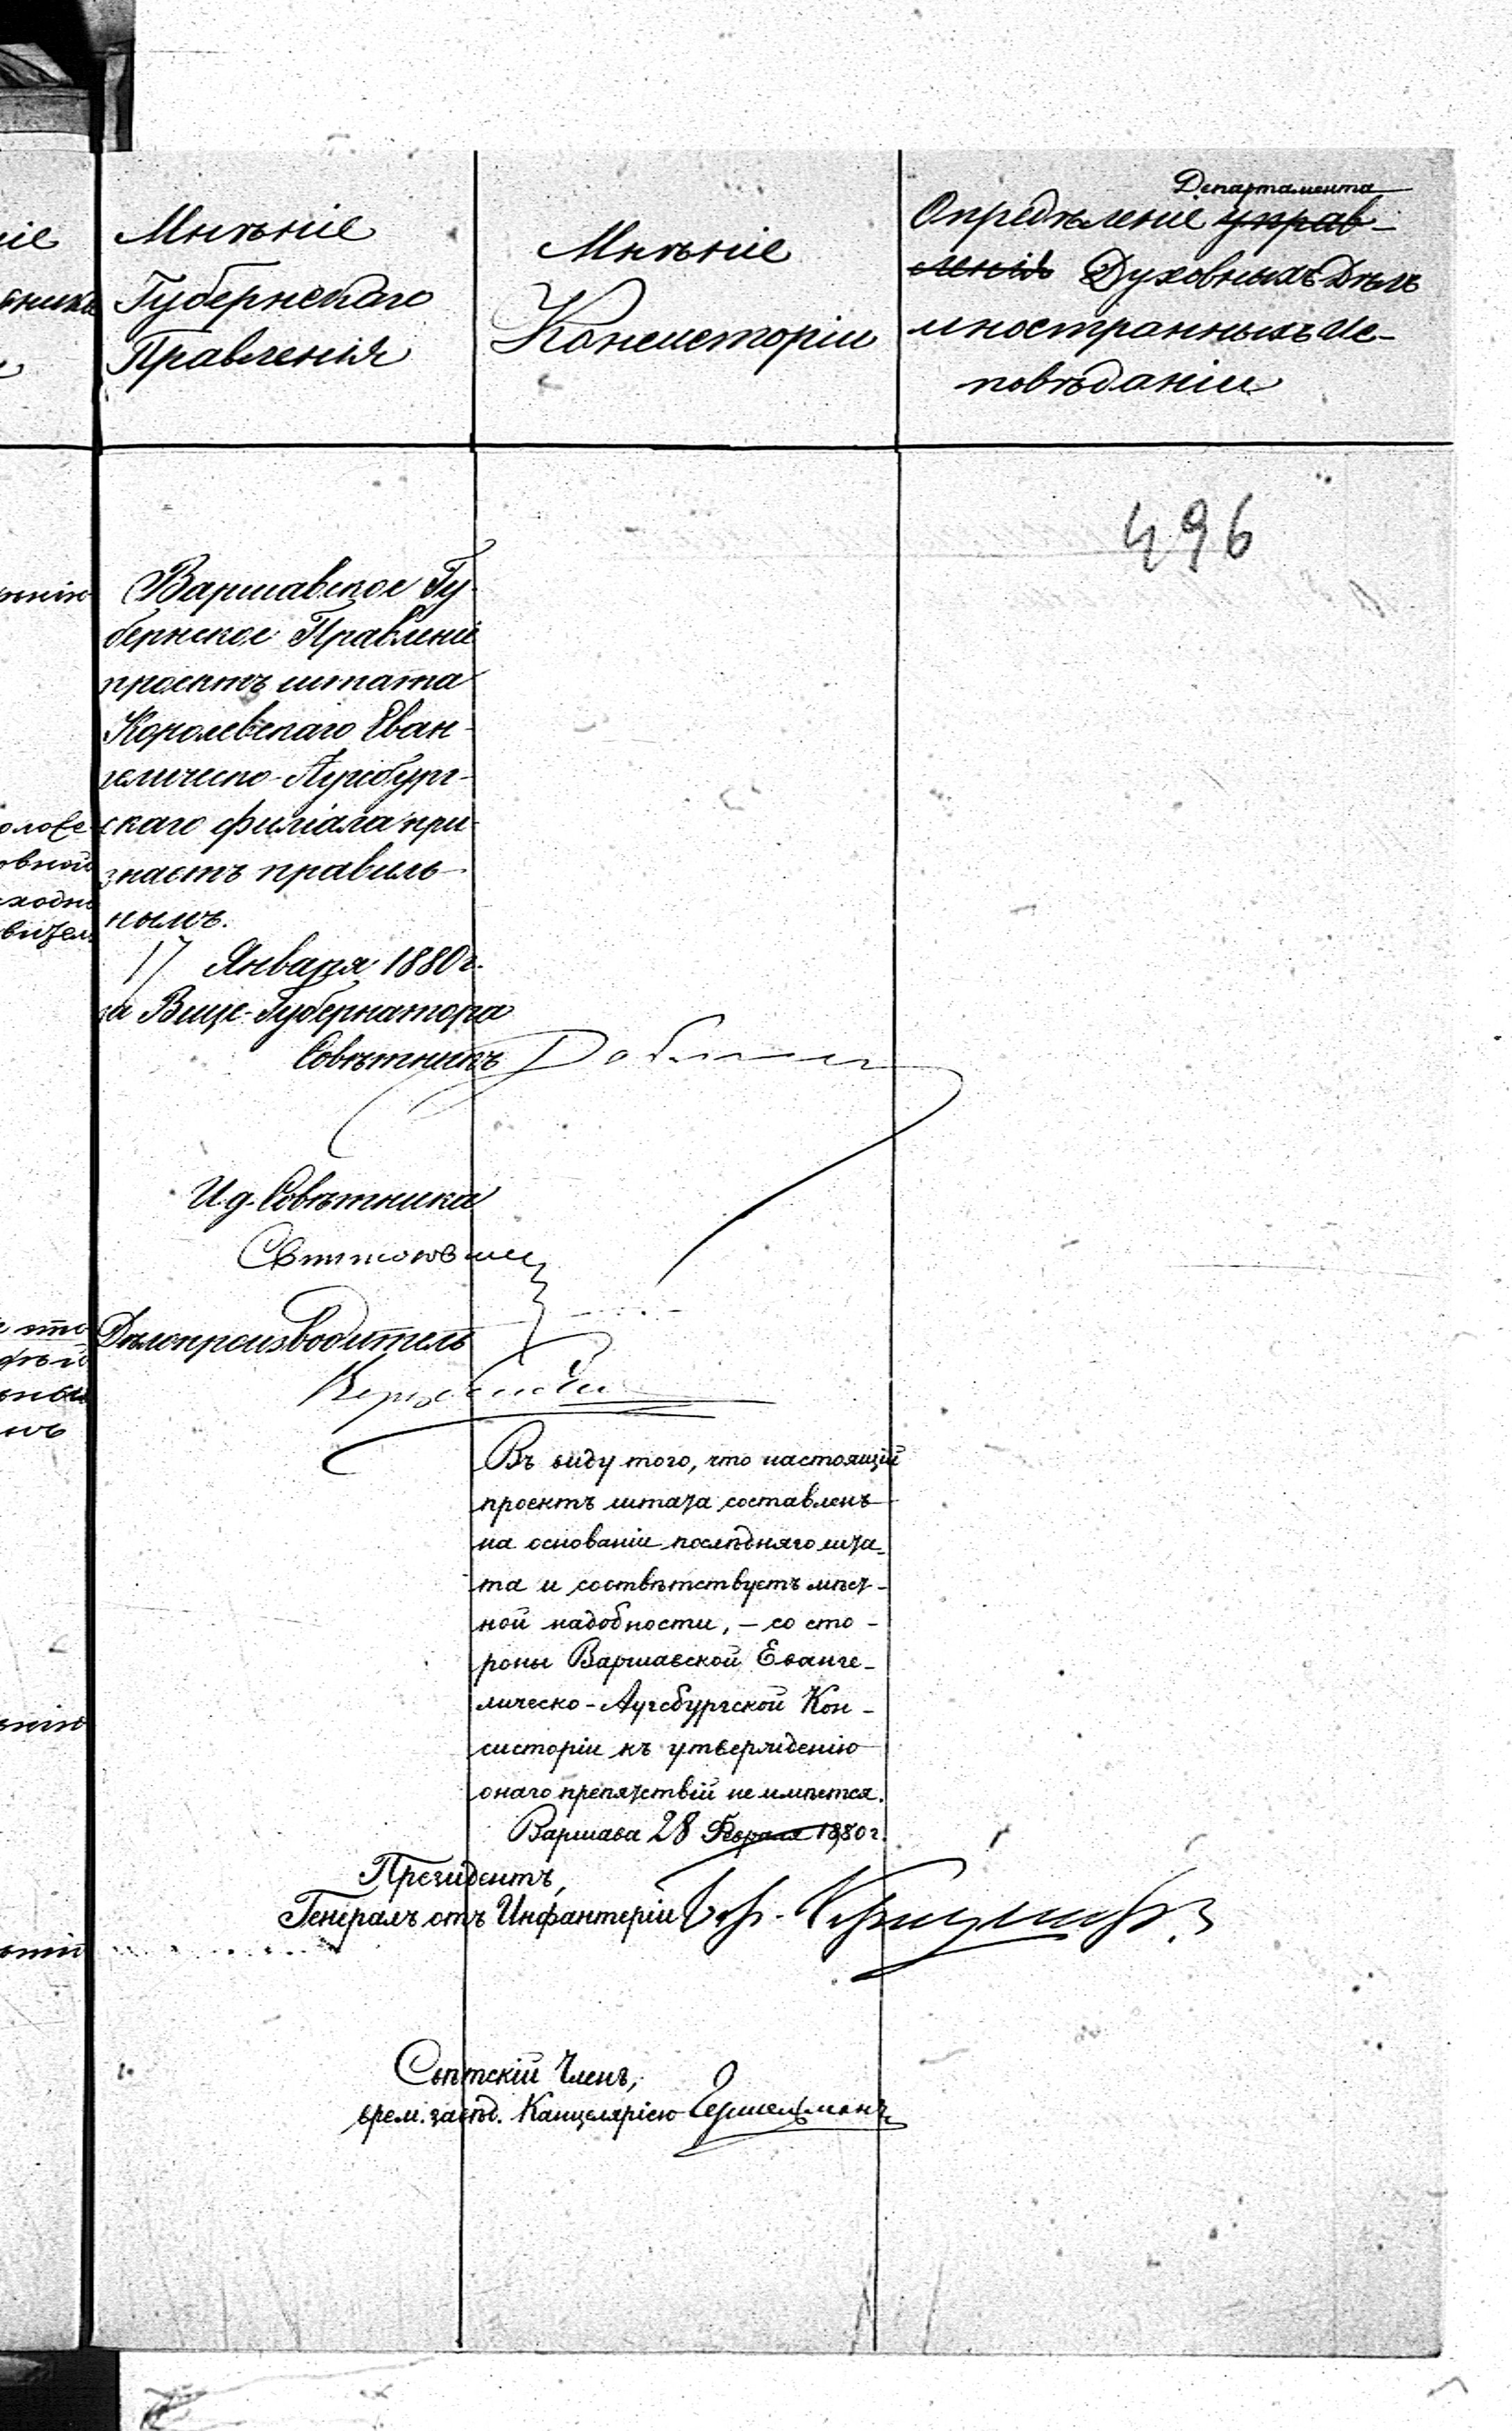 Мнѣніе
Губернскаго
Правленія
Мнѣніе
Консисторіи
Департамента
Опредѣленіе управ-
ленія Духовныхъ Дѣлъ
иностранныхъ Ис-
повѣданіи
496
Варшавское Гу-
бернское Правленіе
проектъ штата
Королевскаго Еван-
гелическо-Аугсбург-
скаго филіала при-
знаетъ правиль-
нымъ.
17 Января 1880 г.
за Вице-Губернатора
Совѣтникъ
И.д. Совѣтника
Дѣлопроизводитель
Въ виду того, что настоящій
проектъ штата составленъ
на основаніи послѣдняго шта-
та и соотвѣтствуетъ мѣст-
ной надобности, — со сто-
роны Варшавской Еванге-
лическо-Аугсбургской Кон-
систоріи къ утвержденію
онаго препятствій не имѣется.
Варшава 28 Февраля 1880 г.
Президентъ,
Генералъ отъ Инфантеріи
Свѣтскій Членъ,
врем. завѣд. Канцеляріею